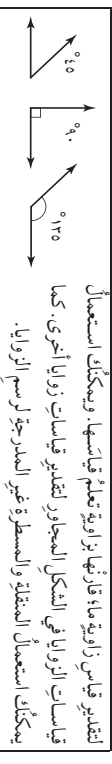 لتقديرِ قياسِ زاويةٍ ما؛ قارنْها بزاويةٍ تعلمُ قياسَها. ويمكنُك استعمالُ
قياساتِ الزوايا في الشكلِ المجاورِ لتقديرِ قياساتِ زوايا أخرى. كما
يمكنُك استعمالُ المنقلةِ والمسطرةِ غيرِ المدرجةِ لرسمِ الزوايا.
٤٥°
٩٠°
١٣٥°